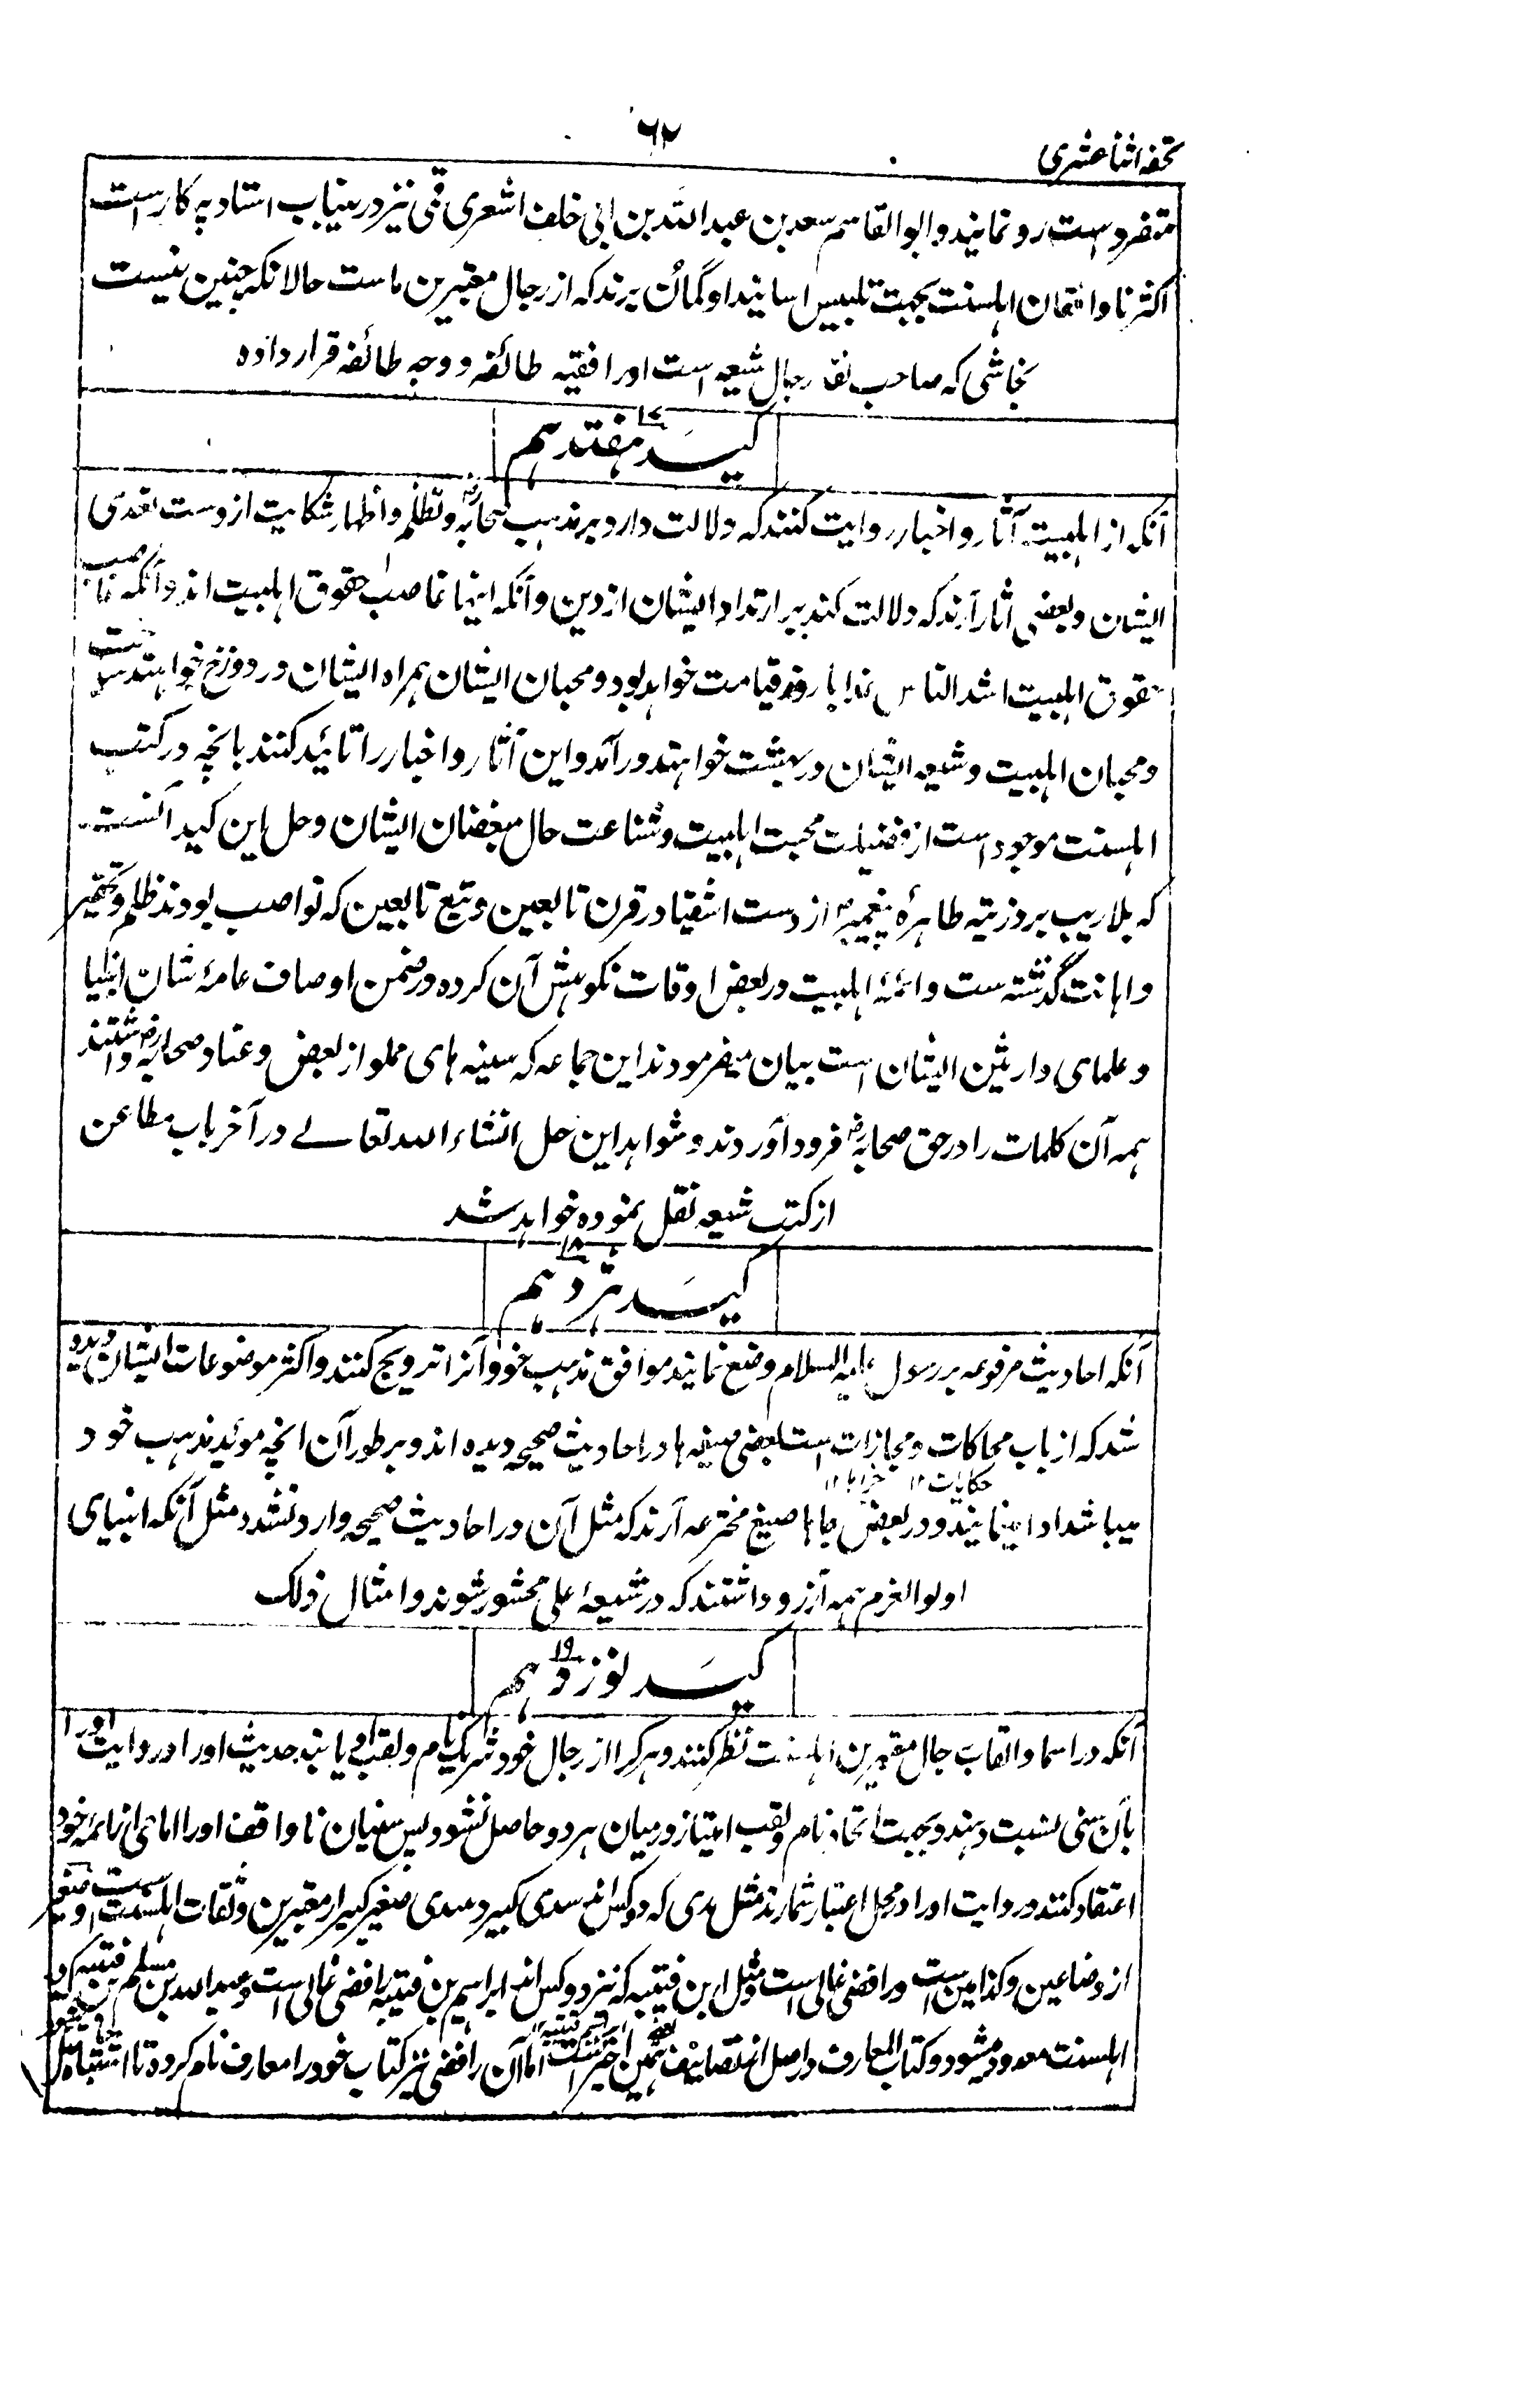 تحفه اثنا عشری
۶۲
متفرد است رو نمایند و ابو القاسم سعد بن عبد الله بن ابی خلف اشعری قمی نیز درینباب استاد پر کار است
اکثر ناواقفان اهلسنت بجهت تلبیس اسانید او گمان برند که از رجال معتبرین ماست حالانکه چنین نیست
نجاشی که صاحب نقد رجال شیعه است او را فقیه طائفه و وجه طائفه قرار داده
کید هفتدهم ۱۷
آنکه از اهلبیت آثار و اخبار روایت کنند که دلالت دارد بر مذهب صحابه رض و تظلم و اظهار شکایت از دست تعدی
ایشان و بعضی آثار آرند که دلالت کند بر ارتداد ایشان از دین و آنکه اینها غاصب حقوق اهلبیت اند و آنکه غاصب
حقوق اهلبیت اشد الناس عذابا روز قیامت خواهد بود و محبان ایشان همراه ایشان در دوزخ خواهند
و محبان اهلبیت و شیعه ایشان در بهشت خواهند در آمد و این آثار و اخبار را تائید کنند بانچه در کتب
اهلسنت موجود است از فضیلت محبت اهلبیت و شناعت حال مبغضان ایشان و حل این کید آنست
که بلا ریب بر ذریته طاهرهٔ پیغمبر ص از دست اشقیا در قرن تابعین و تبع تابعین که نواصب بودند ظلم و تحقیر
و اهانت گذشته ست و ائمهٔ اهلبیت در بعض اوقات نکوهش آن کرده در ضمن اوصاف عامهٔ شان انبیا
و علمای وارثین ایشان است بیان میفرمودند این جماعه که سینه های مملو از بغض و عناد صحابه رض داشتند
همه آن کلمات را در حق صحابه رض فرود آوردند و شواهد این حل انشاء الله تعالے در آخر باب مطاعن
از کتب شیعه نقل نموده خواهد شد
کید هژدهم ۱۸
آنکه احادیث مرفوعه بر رسول علیه السلام وضع نمایند موافق مذهب خود و آنرا ترویج کنند و اکثر موضوعات ایشان دیده
شد که از باب محاکات و مجازات است بعضی صیغه ها در احادیث صحیحه دیده اند و بر طور آن انچه موئد مذهب خود
حکایات ۱۲ جزاها ۱۲
میباشد ادا مینمایند و در بعض جاها صیغ مخترعه آرند که مثل آن در احادیث صحیحه وارد نشده مثل آنکه انبیای
اولو العزم همه آرزو داشتند که در شیعهٔ علی محشور شوند و امثال ذلک
کید نوزدهم ۱۹
آنکه در اسما و القاب رجال معتبرین اهلسنت نظر کنند و هر کرا از رجال خود شریک نام و لقب او یابند حدیث او را و روایت او را
بآن سنی نسبت دهند و بجهت اتحاد نام و لقب امتیاز درمیان هر دو حاصل نشود پس سنیان ناواقف او را امامی از ائمه خود
اعتقاد کنند و روایت او را در محل اعتبار شمارند مثل سدی که دو کس اند سدی کبیر و سدی صغیر کبیر از معتبرین و ثقات اهلسنت است و صغیر
از وضاعین و کذابین است و رافضی غالی است و مثل ابن قتیبه که نیز دو کس اند ابراهیم بن قتیبه رافضی غالی است و عبد الله بن مسلم بن قتیبه که در
اهلسنت معدود میشود و کتاب المعارف در اصل از تصانیف همین اخیر است اما آن رافضی نیز کتاب خود را معارف نام کرده تا اشتباه